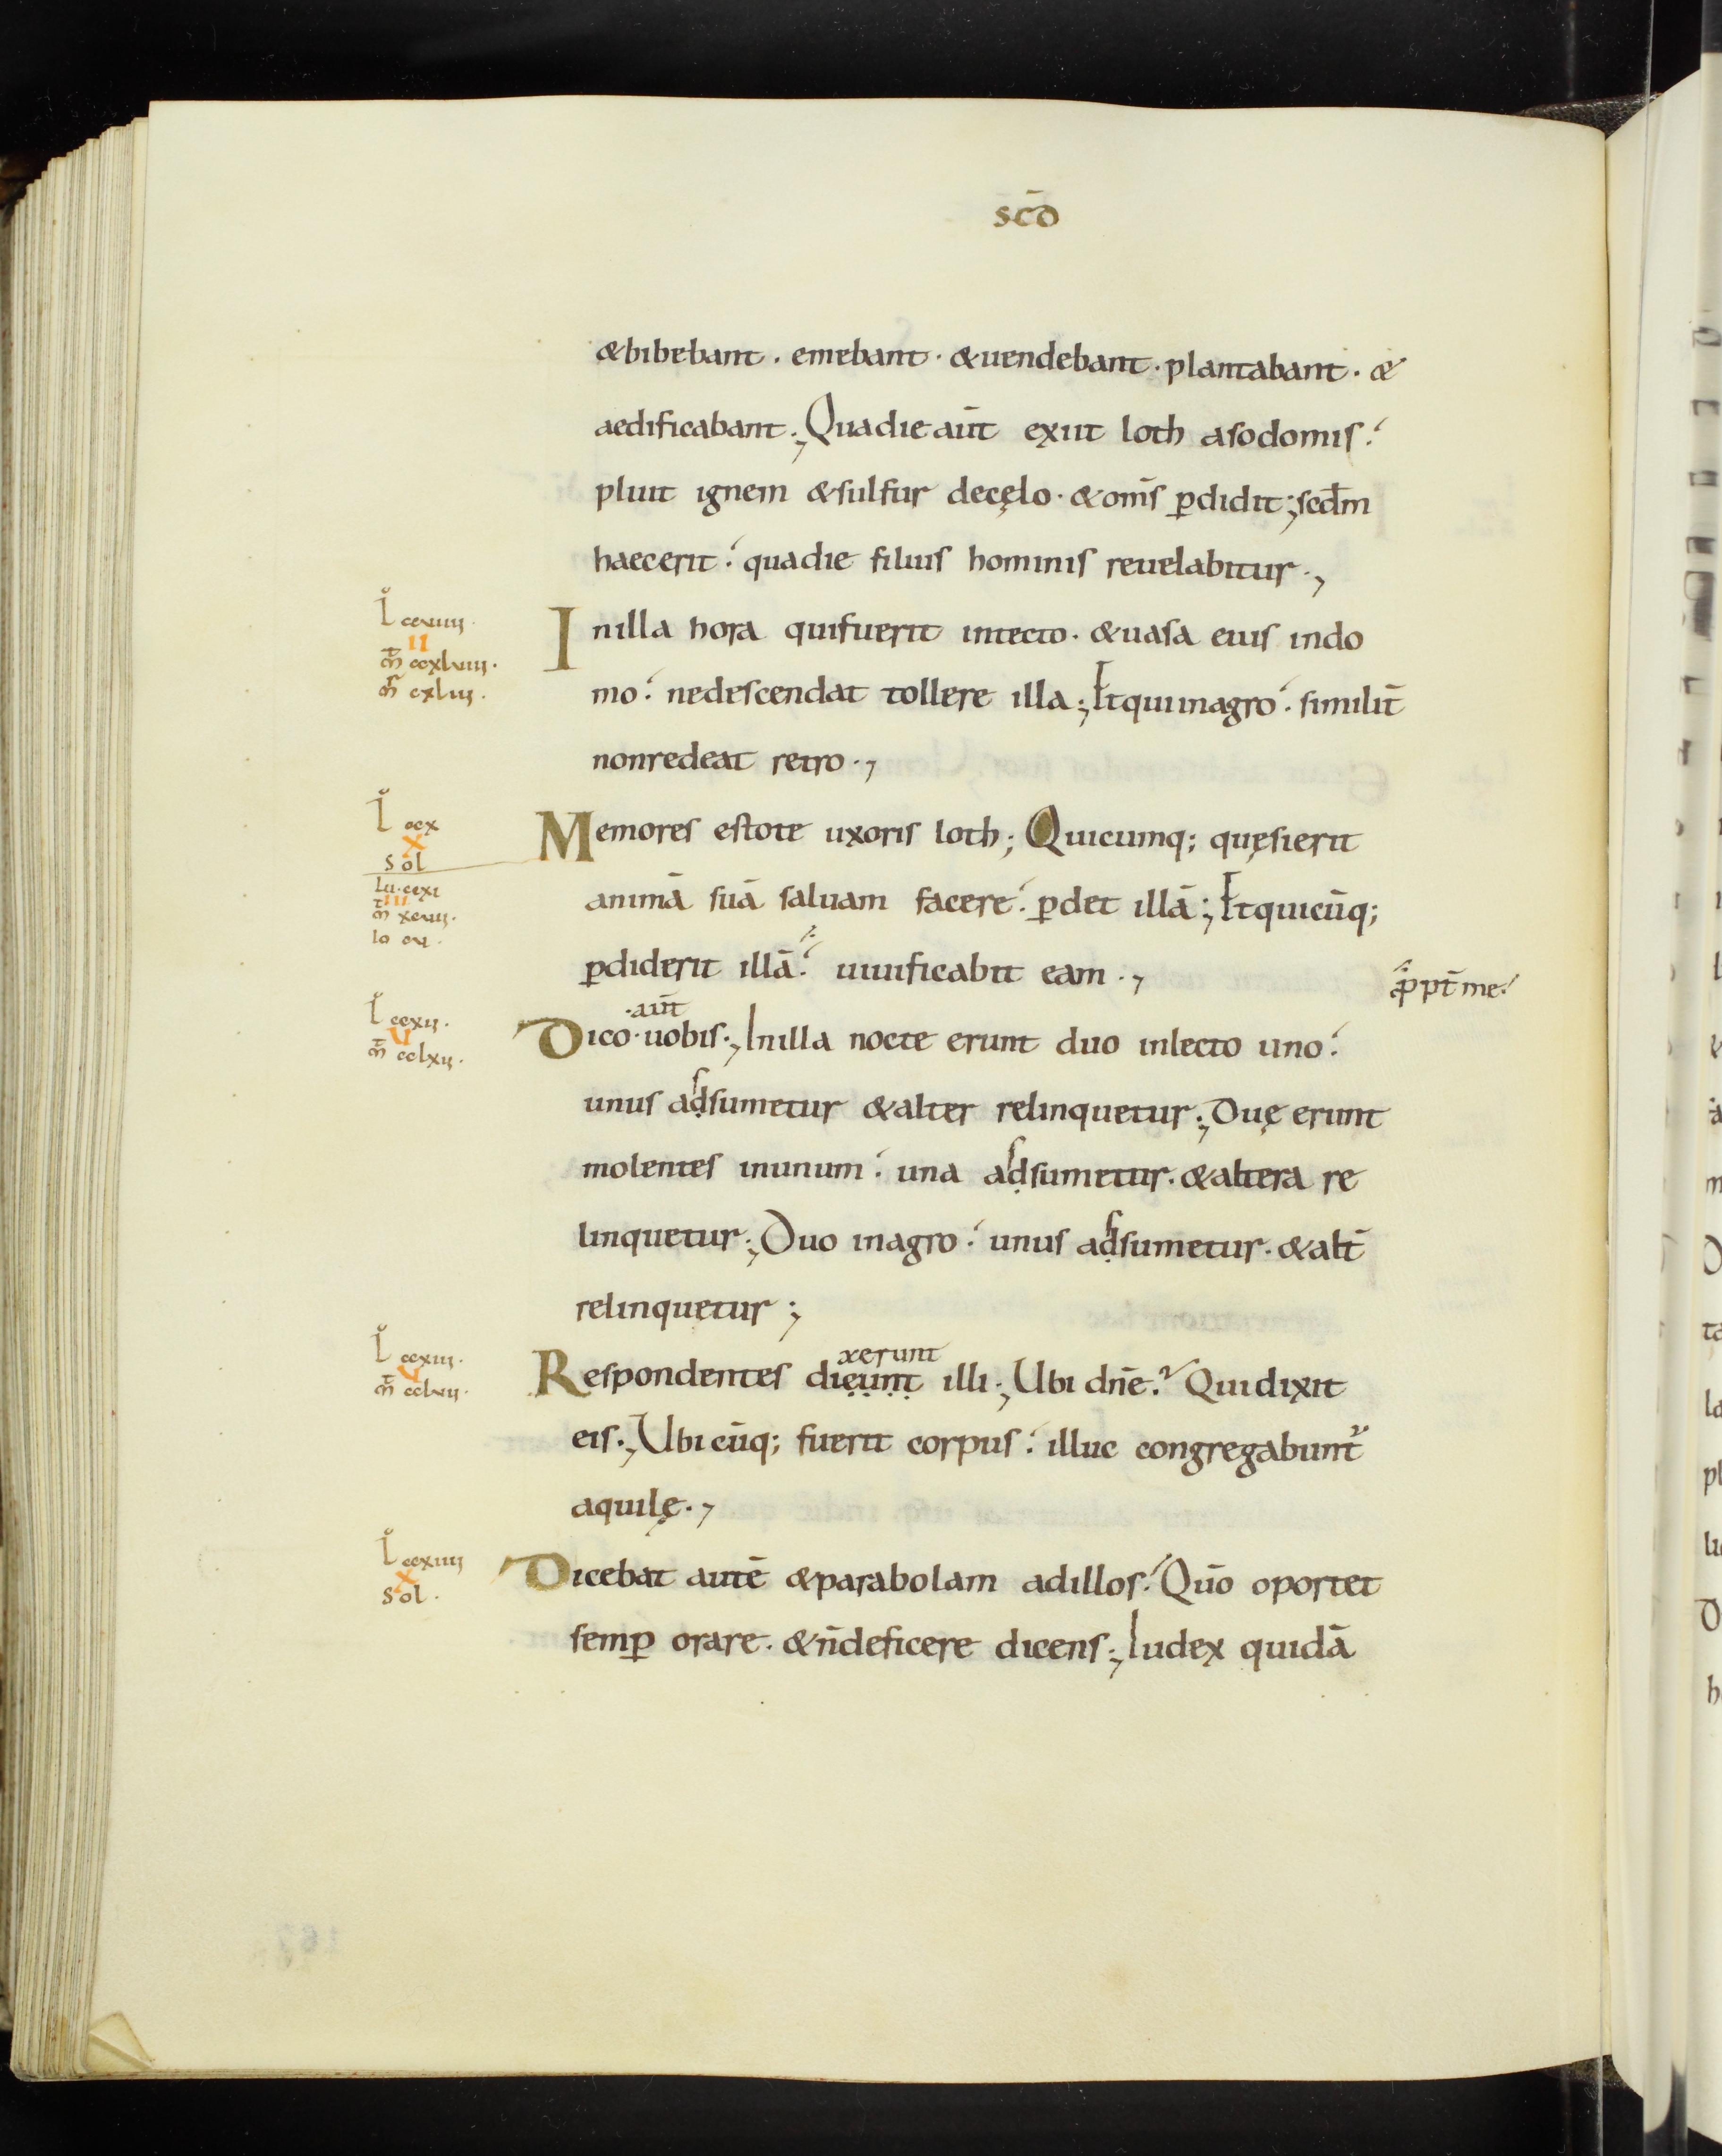 sc̄d
&bibebant. emebant. &uendebant. plantabant. &
aedificabant; Quadie aūt exiit loth asodomis.
pluit ignem &sulfur decęlo. &om̄s ꝑdidit; scd̄m
haecerit. quadie filius hominis reuelabitur.,
L ccuiiii.
II
m̄ ccxluiii.
m̄ cxliii.
Inilla hora quifuerit intecto. &uasa eius indo
mo. nedescendat tollere illa; Etquiinagro. similit̄
nonredeat retro.,
L ccx
X
sol
Lu. ccxi
III
m̄ xcuii.
Io cu.
Memores estote uxoris loth; Quicumq; quęsierit
animā suā saluam facere. ꝑdet illā; Etquicūq;
ꝑdiderit illā. uiuificabit eam.,
ꝓpt̄ me.
L ccxii.
V
m̄ cclxii.
aūt
Dico. uobis; Inilla nocte erunt duo inlecto uno.
unus adsumetur &alter relinquetur; Duę erunt
molentes inunum. una adsumetur. &altera re
linquetur; Duo inagro. unus adsumetur. &alt̄
relinquetur;
L ccxiii.
V
m̄ ccluii.
xerunt
Respondentes dicunt illi; Ubi dn̄e? Quidixit
eis., Ubicūq; fuerit corpus. illuc congregabunt᷑
aquilę.,
L ccxiiii
X
sol.
Dicebat autē &parabolam adillos. Qūo oportet
semꝑ orare. &n̄deficere dicens; Iudex quidā